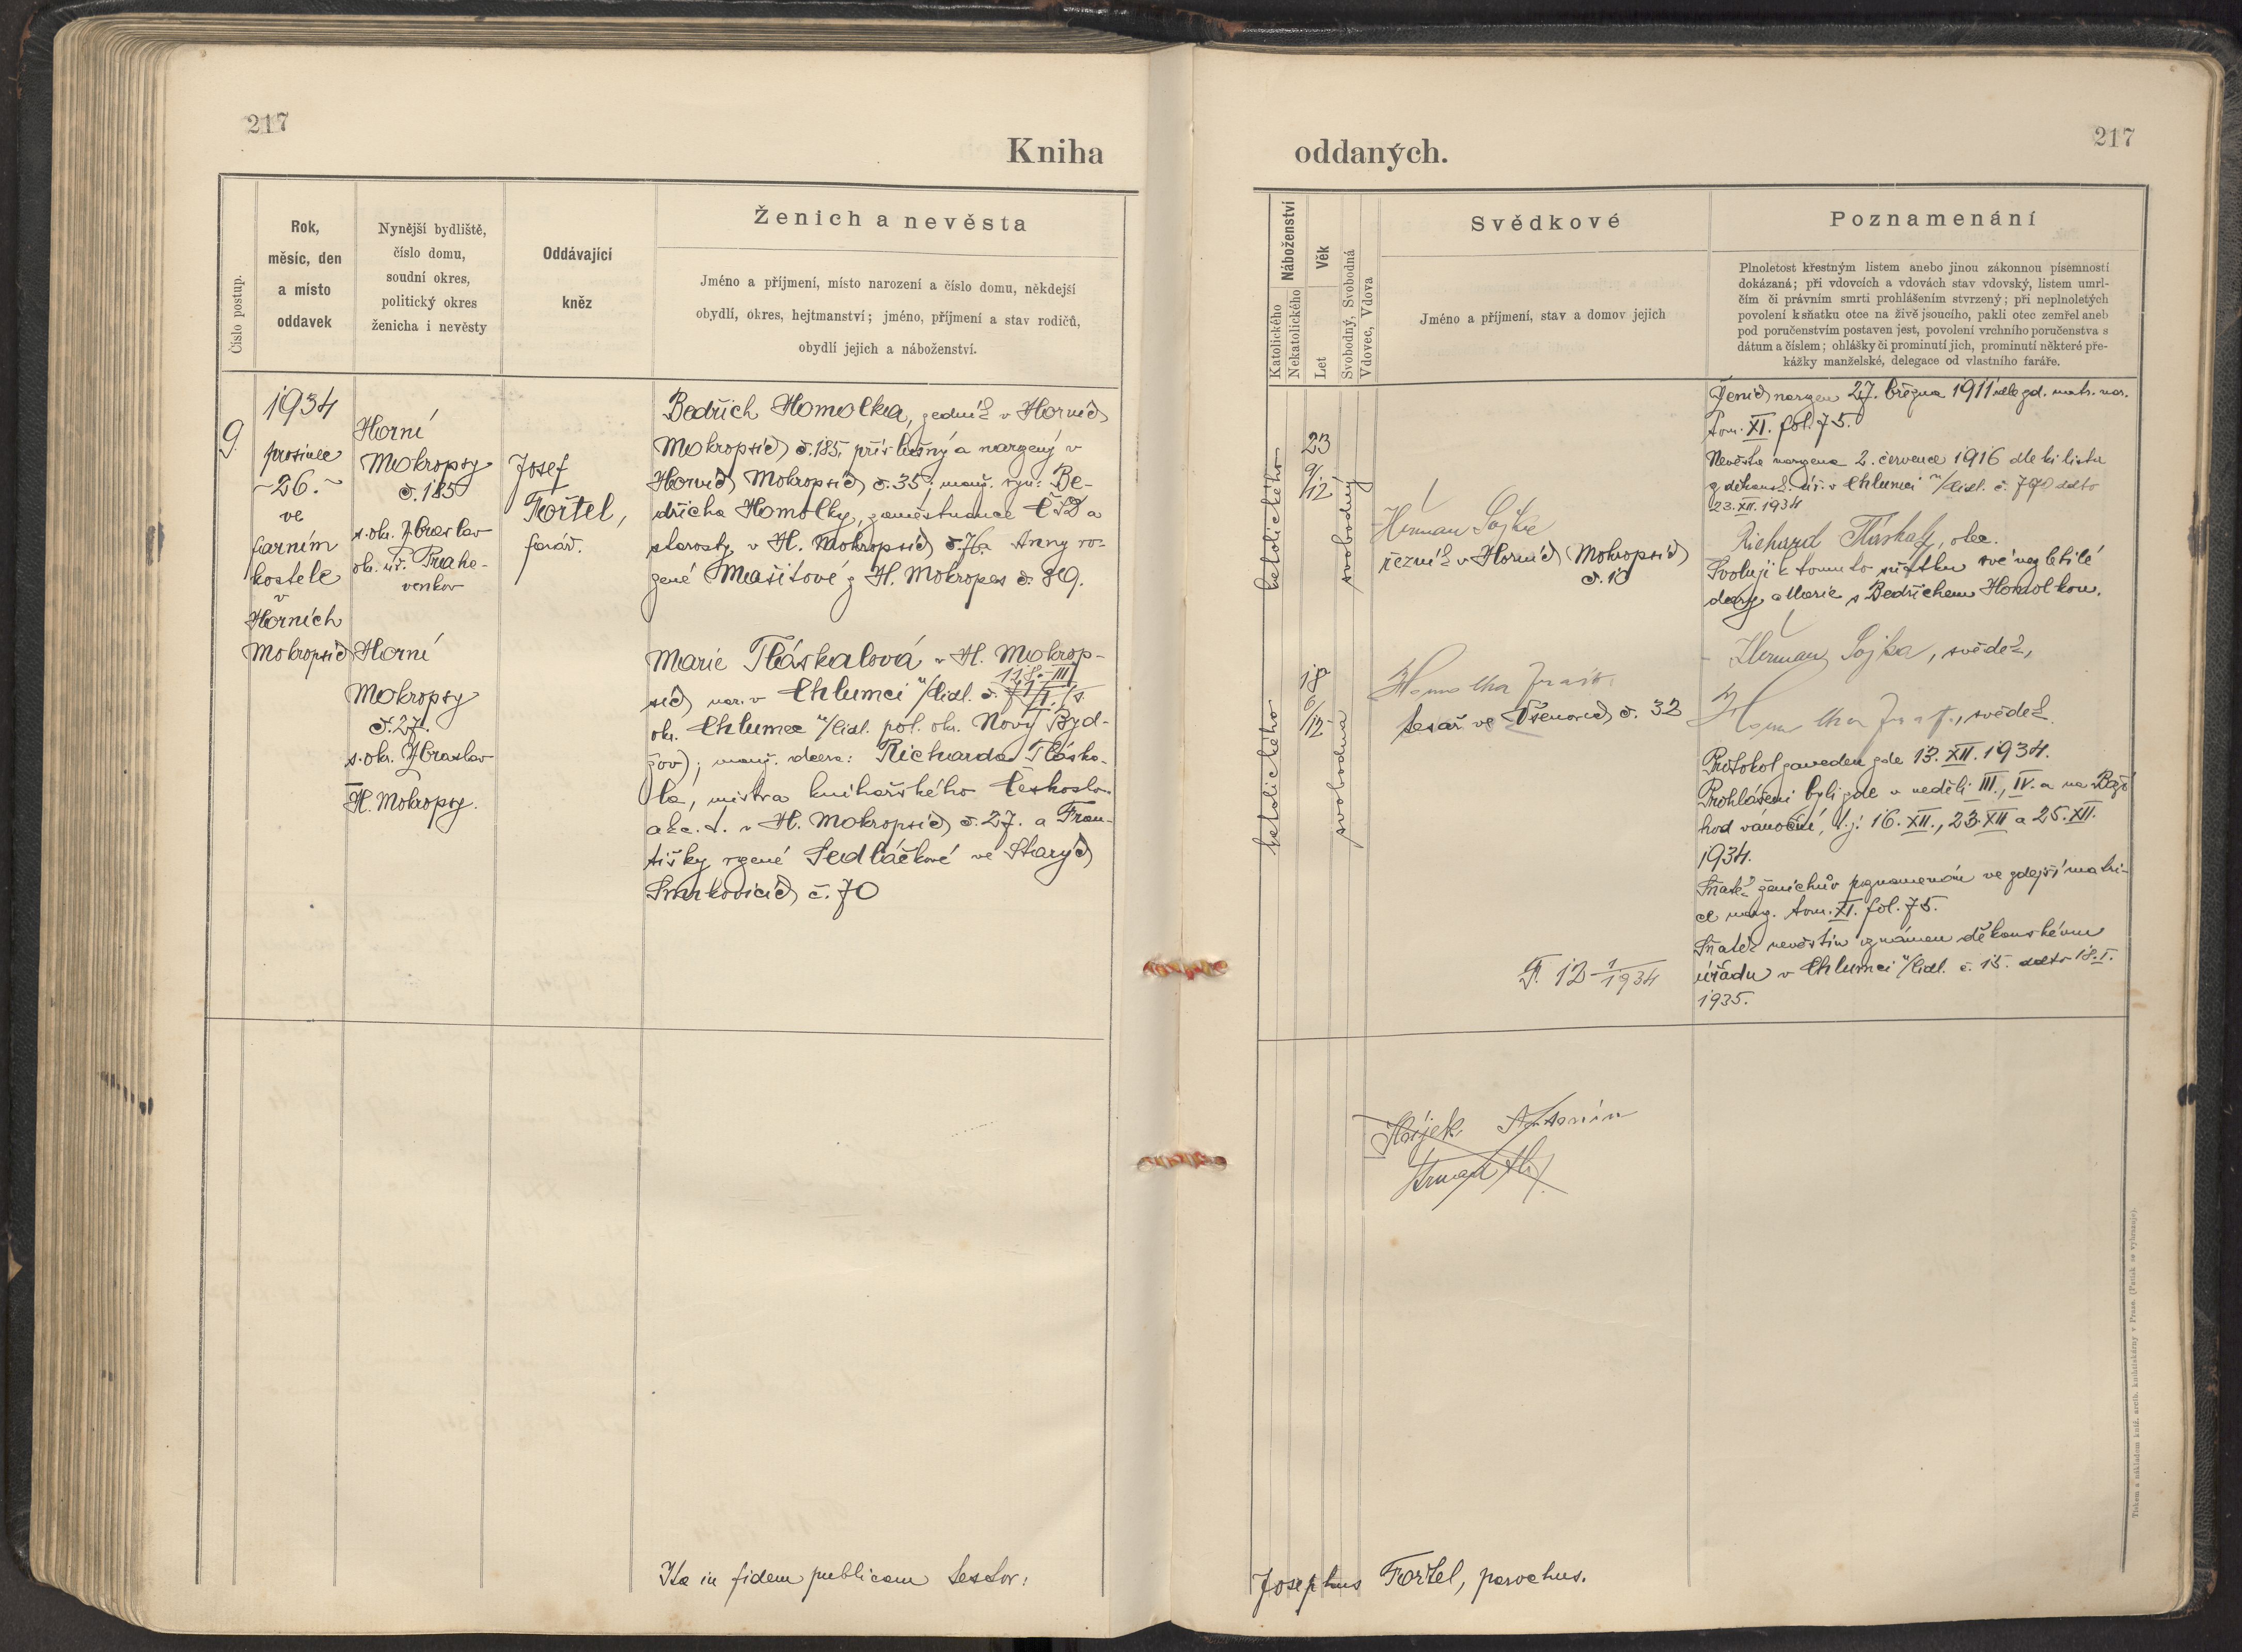 217
217
Kniha
oddaných.
Číslo postup.
Rok,
měsíc, den
a místo
oddavek
Nynější bydliště,
číslo domu,
soudní okres,
politický okres
ženicha i nevěsty
Oddávající
kněz
Ženich a nevěsta
Jméno a příjmení, místo narození a číslo domu, někdejší
obydlí, okres, hejtmanství; jméno, příjmení a stav rodičů,
obydlí jejich a náboženství.
9.
1934
prosince
26.
ve
farním
kostele
v
Horních
Mokropsích
Horní
Mokropsy
č. 185
s. ok. Zbraslav
ok. úř. Praha-
venkov
Horní
Mokropsy
č. 27.
s. ok. Zbraslav
H. Mokropsy.
Josef
Fořtel,
farář.
Bedřich Homolka, zedník v Horních
Mokropsích č. 185, příslušný a narozený v
Horních Mokropsích č. 35; manž. syn: Be-
dřicha Homolky, zaměstnance ČSD a
starosty v H. Mokropsích č. 76. Anny ro-
zené Mašitové z H. Mokropes č.
Marie Tláskalová v H. Mokrop-
sích nar. v Chlumci n/Cidl. č. 118-III
ok. Chlumec n/Cidl. pol. ok. Nový Byd-
žov); manž. dcera: Richarda Tláska-
la, mistra knihařského Českoslo.
akc. s. v H. Mokropsích č. 27. a Fran-
tišky rozené Sedláčkové ve Starých
Smrkovicích č. 70
Ita in fidem publicam testor:
Náboženství
Katolického
Nekatolického
Věk
Let
Svobodný, Svobodná
Vdovec, Vdova
Svědkové
Jméno a příjmení, stav a domov jejich
Poznamenání
Plnoletost křestným listem anebo jinou zákonnou písemností
dokázaná; při vdovcích a vdovách stav vdovský, listem úmrt-
čím či právním smrti prohlášením stvrzený; při neplnoletých
povolení k sňatku otce na živě jsoucího, pakli otec zemřel aneb
pod poručenstvím postaven jest, povolení vrchního poručenstva s
dátum a číslem; ohlášky či prominutí jich, prominutí některé pře-
kážky manželské, delegace od vlastního faráře.
katolického
23
9/12
svobodný
Heřman Sojka
řezník v Horních Mokropsích
č. 10
katolického
18
svobodná
Homolka
tesař ve Všenorech č. 32
F. 12 1/1934
Hájek Antonín
Josephus Fořtel, parochus.
Ženich narozen 27. března 1911 dle zd. matr. nar.
tom. XI. fol. 75.
Nevěsta narozena 2. července 1916 dle kř. listu
z děkansk. úř. v Chlumci n/Cidl. č. 770 ddto
23. XII. 1934
Richard Tláskal, otec.
Svoluji k tomuto sňatku své nezletilé
dcery Marie s Bedřichem Homolkou.
Heřman Sojka, svědek,
Homolka, svědek.
Protokol zaveden zde 13. XII. 1934.
Prohlášeni byli zde v neděli III., IV. a na Boží
hod vánoční, t. j. 16. XII., 23. XII a 25. XII.
1934.
Sňatek ženichův poznamenán ve zdejší matri-
ce naroz. tom. XI. fol. 75.
Sňatek nevěstin oznámen děkanskému
úřadu v Chlumci n/Cidl. č. 15. ddto 18. I.
1935.
Tiskem a nákladem kníž. arcib. knihtiskárny v Praze. (Patisk se vyhrazuje).